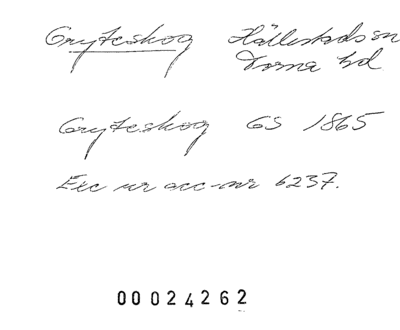 Gryteskog Hällestads sn
Torna hd
Gryteskog GS 1865
Exc ur acc-nr 6237.
00024262